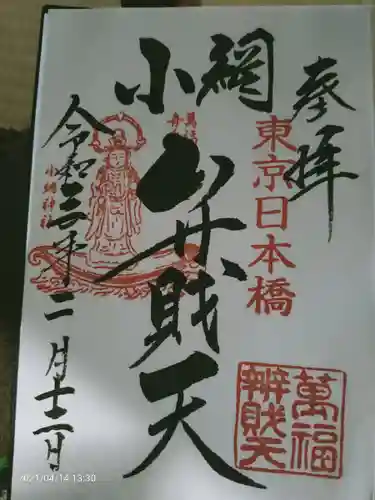 奉拝
東京日本橋
小網
弁財天
令和三年二月十二日
小網神社
萬福
辨財天
2021/04/14 13:30